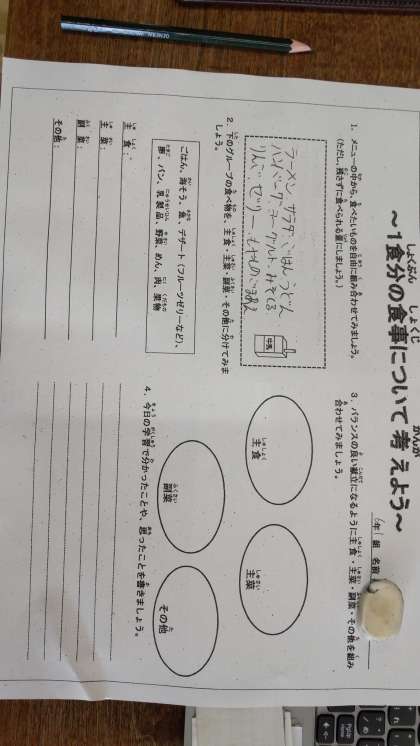 ～１食分の食事について考えよう～
6年1組 名前
１．メニューの中から、食べたいものを自由に組み合わせてみましょう。
（ただし、残さずに食べられる量にしましょう。）
ラーメン サラダ ごはん うどん
ハンバーグ ヨーグルト みそしる
りんご ゼリー
牛乳
２．下のグループの食べ物を、主食・主菜・副菜・その他に分けてみま
しょう。
ごはん、海そう、魚、デザート（フルーツゼリーなど）、
卵、パン、乳製品、野菜、めん、肉、果物
主食：
主菜：
副菜：
その他：
３．バランスの良い献立になるように主食・主菜・副菜・その他を組み
合わせてみましょう。
主食
主菜
副菜
その他
４．今日の学習で分かったことや、思ったことを書きましょう。